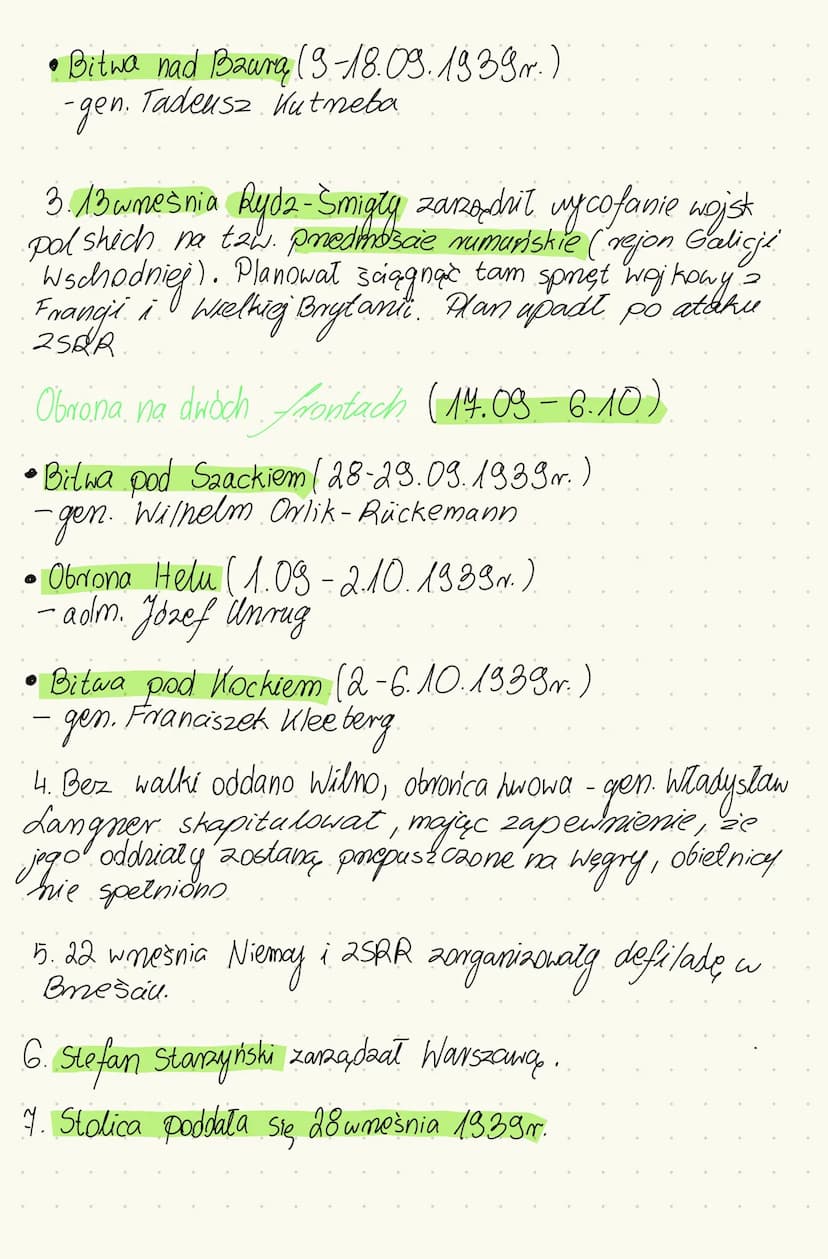 • Bitwa nad Bzurą (9-18.09.1939r.)
- gen. Tadeusz Kutrzeba
3. 13 września Rydz-Śmigły zarządził wycofanie wojsk
polskich na tzw. przedmoście rumuńskie (rejon Galicji
Wschodniej). Planował ściągnąć tam sprzęt wojkowy z
Francji i Wielkiej Brytanii. Plan upadł po ataku
ZSRR
Obrona na dwóch frontach (17.09 - 6.10)
• Bitwa pod Szackiem (28-29.09.1939r.)
- gen. Wilhelm Orlik-Rückemann
• Obrona Helu (1.09 - 2.10.1939r.)
- adm. Józef Unrug
• Bitwa pod Kockiem (2-6.10.1939r.)
- gen. Franciszek Kleeberg
4. Bez walki oddano Wilno, obrońca Lwowa - gen. Władysław
Langner skapitulował, mając zapewnienie, że
jego oddziały zostaną przepuszczone na Węgry, obietnicy
nie spełniono
5. 22 września Niemcy i ZSRR zorganizowały defiladę w
Brześciu.
6. Stefan Starzyński zarządzał Warszawą.
7. Stolica poddała się 28 września 1939r.